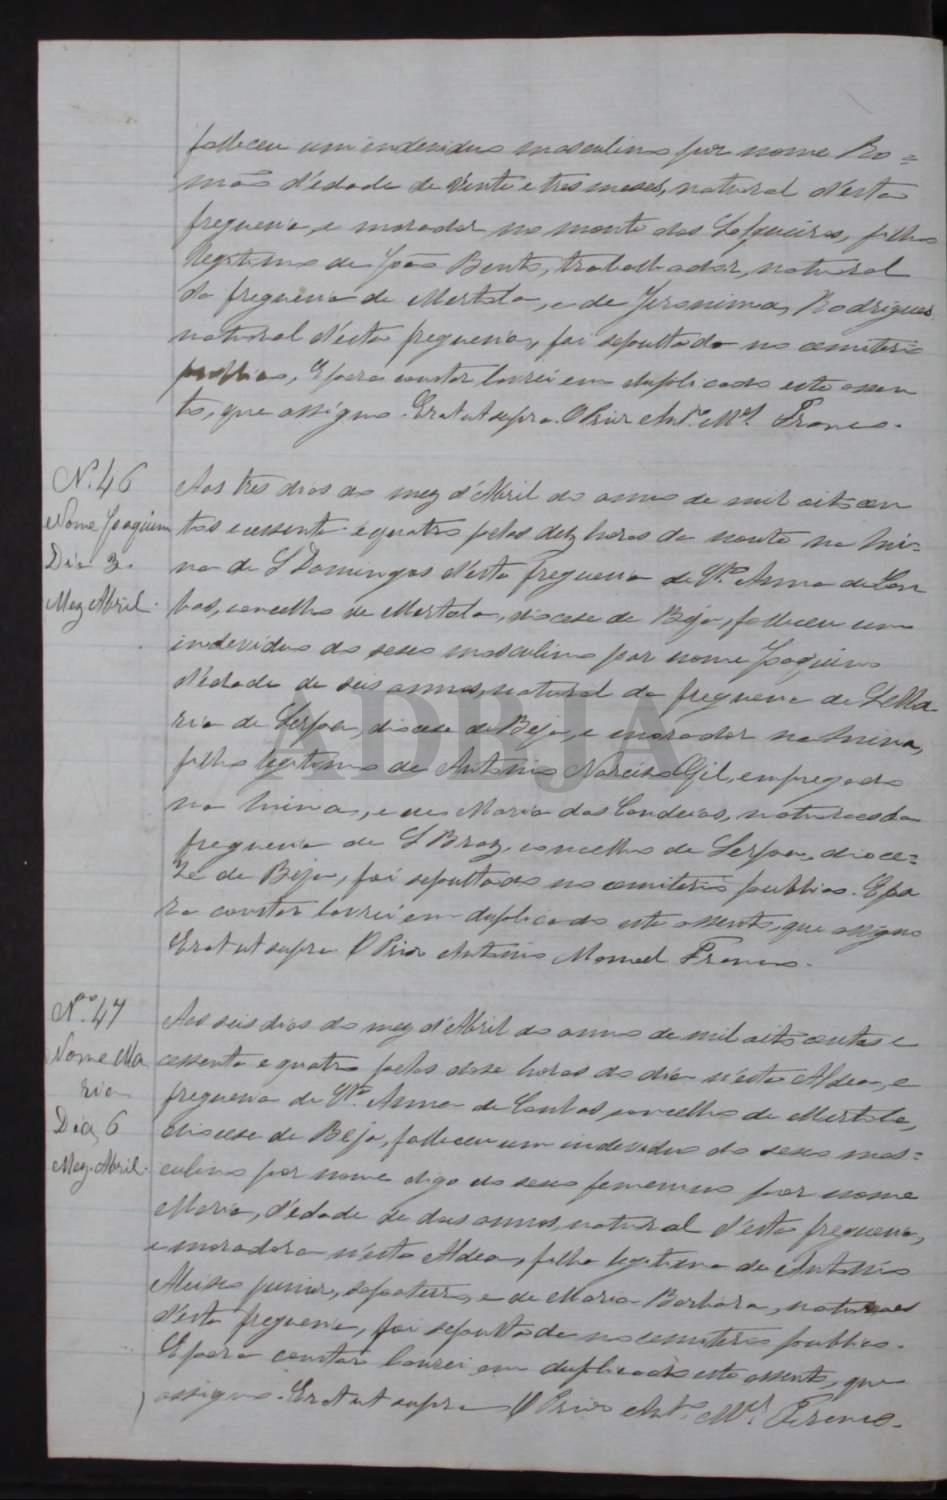 falleceu um individuo masculino por nome Ro=
mão d'edade de vinte e tres meses, natural d'esta
freguesia, e morador no monte dos filho
legitimo de João Bento, trabalhador, natural
da freguesia de Mertola, e de Jeronima Rodrigues
natural d'esta freguesia, foi sepultado no cemiterio
publico, E para constar lavrei em duplicado este assen
to, que assigno. Era ut supra. O Prior Antº. Mel. Franco.
N. 46
Nome Joaquim
Dia 3.
Mez Abril.
Aos tres dias do mez d'Abril do anno de mil oitocen
tos e cessenta e quatro pelas dez horas da noute na Mi=
na de S Domingos d'esta freguesia de Stª. Anna de Cam
bas, concelho de Mertola, diocese de Beja, falleceu um
individuo do sexo masculino por nome Joaquim
d'edade de seis annos, natural da freguesia de S Ma
ria de Serpa, diocese de Beja, e morador na Mina,
filho legitimo de Antonio Narciso Gil, empregado
na Mina, e de Maria das Candeias, naturaes da
freguesia de S Braz, concelho de Serpa, dioce=
ze de Beja, foi sepultado no cemiterio publico. E pa
ra constar lavrei em duplicado este assento, que assigno
Era ut supra O Prior Antonio Manoel Franco.
Nº. 47
Nome Ma
ria
Dia 6
Mez Abril.
Aos seis dias do mez d'Abril do anno de mil oitocentos e
cessenta e quatro pelas dose horas do dia n'esta Aldea, e
freguesia de Stª. Anna de Cambas, concelho de Mertola,
diocese de Beja, falleceu um individuo do sexo mas=
culino por nome digo do sexo femenino por nome
Maria, d'edade de dois annos, natural d'esta freguesia,
e moradora n'esta Aldea, filha legitima de Antonio
Aleixo junior, sapateiro, e de Maria Barbara, naturaes
d'esta freguesia, foi sepultada no cemiterio publico.
E para constar lavrei em duplicado este assento, que
assigno. Era ut supra O Prior Antº. Mel. Franco.
ADBJA